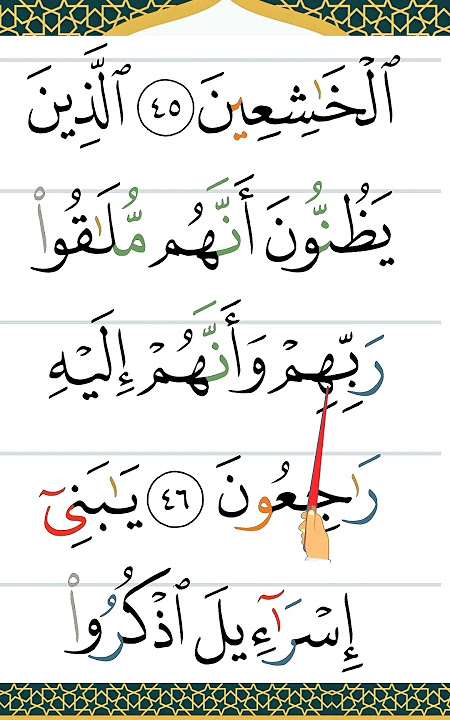 ٱلْخَـٰشِعِينَ ٤٥ ٱلَّذِينَ
يَظُنُّونَ أَنَّهُم مُّلَـٰقُوا۟
رَبِّهِمْ وَأَنَّهُمْ إِلَيْهِ
رَٰجِعُونَ ٤٦ يَـٰبَنِىٓ
إِسْرَٰٓءِيلَ ٱذْكُرُوا۟